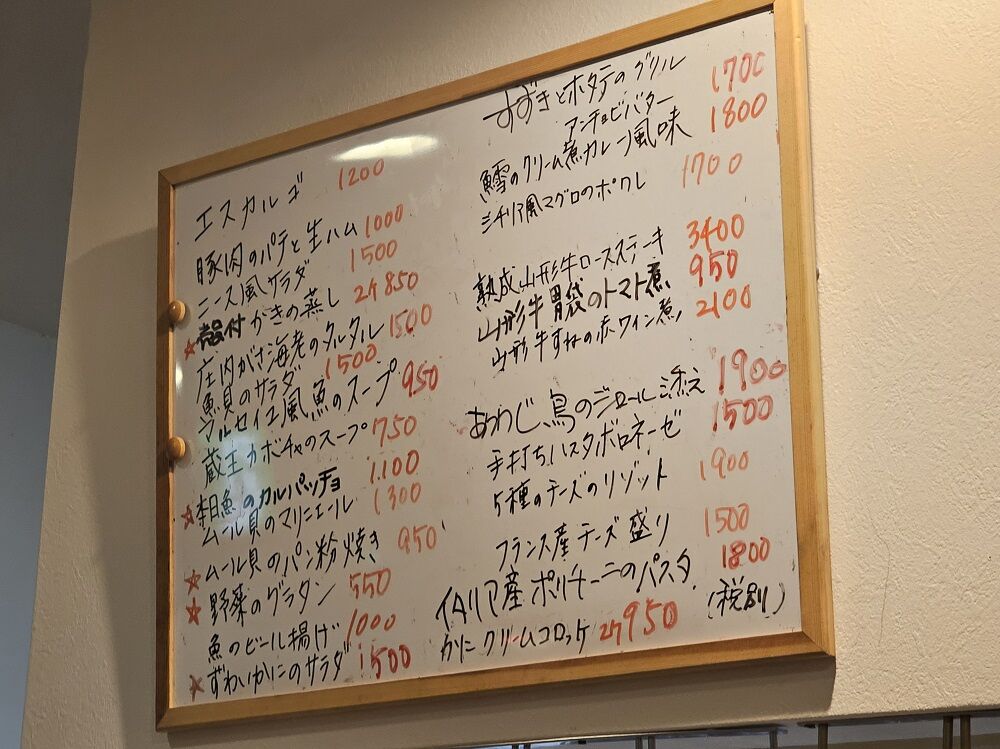 エスカルゴ 1200
豚肉のパテと生ハム 1000
ニース風サラダ 1500
☆殻付がきの蒸し 2ケ850
庄内がさ海老のタルタル 1500
魚貝のサラダ 1500
マルセイユ風魚のスープ 950
蔵王カボチャのスープ 750
☆本日魚のカルパッチョ 1100
ムール貝のマリニエール 1300
☆ムール貝のパン粉焼き 950
☆野菜のグラタン 550
魚のビール揚げ 1000
☆ずわいかにのサラダ 1500
すずきとホタテのグリル 1700
アンチョビバター
鱈のクリーム煮カレー風味 1800
シチリア風マグロのポワレ 1700
熟成山形牛ロースステーキ 3400
山形牛胃袋のトマト煮 950
山形牛すねの赤ワイン煮 2100
あわじ鳥のジロール添え 1900
手打ちパスタボロネーゼ 1500
5種のチーズのリゾット 1900
フランス産チーズ盛り 1500
イタリア産ポルチーニのパスタ 1800
かにクリームコロッケ 2ケ950
(税別)